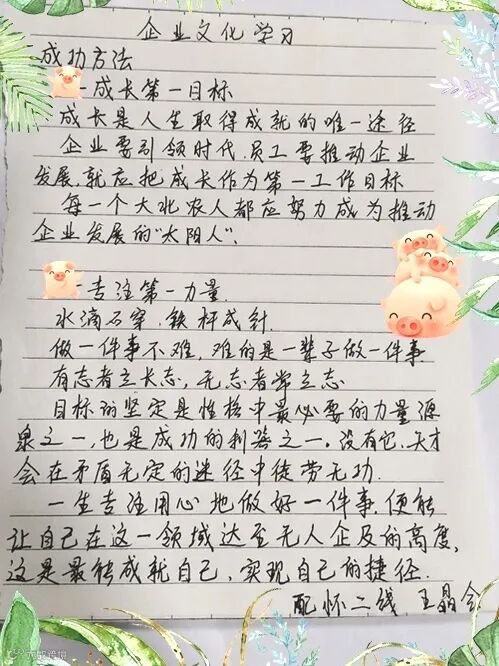 企业文化学习
成功方法
一成长第一目标
成长是人生取得成就的唯一途径
企业要引领时代.员工要推动企业
发展,就应把成长作为第一工作目标
每一个大北农人都应努力成为推动
企业发展的“太阳人”.
一专注第一力量.
水滴石穿,铁杵成针.
做一件事不难,难的是一辈子做一件事.
有志者立长志,无志者常立志
目标的坚定是性格中最必要的力量源
泉之一,也是成功的利器之一。没有它,天才
会在矛盾无定的迷径中徒劳无功.
一生专注用心地做好一件事.便能
让自己在这一领域达至无人企及的高度,
这是最能成就自己,实现自己的捷径.
配怀二线 王晶会